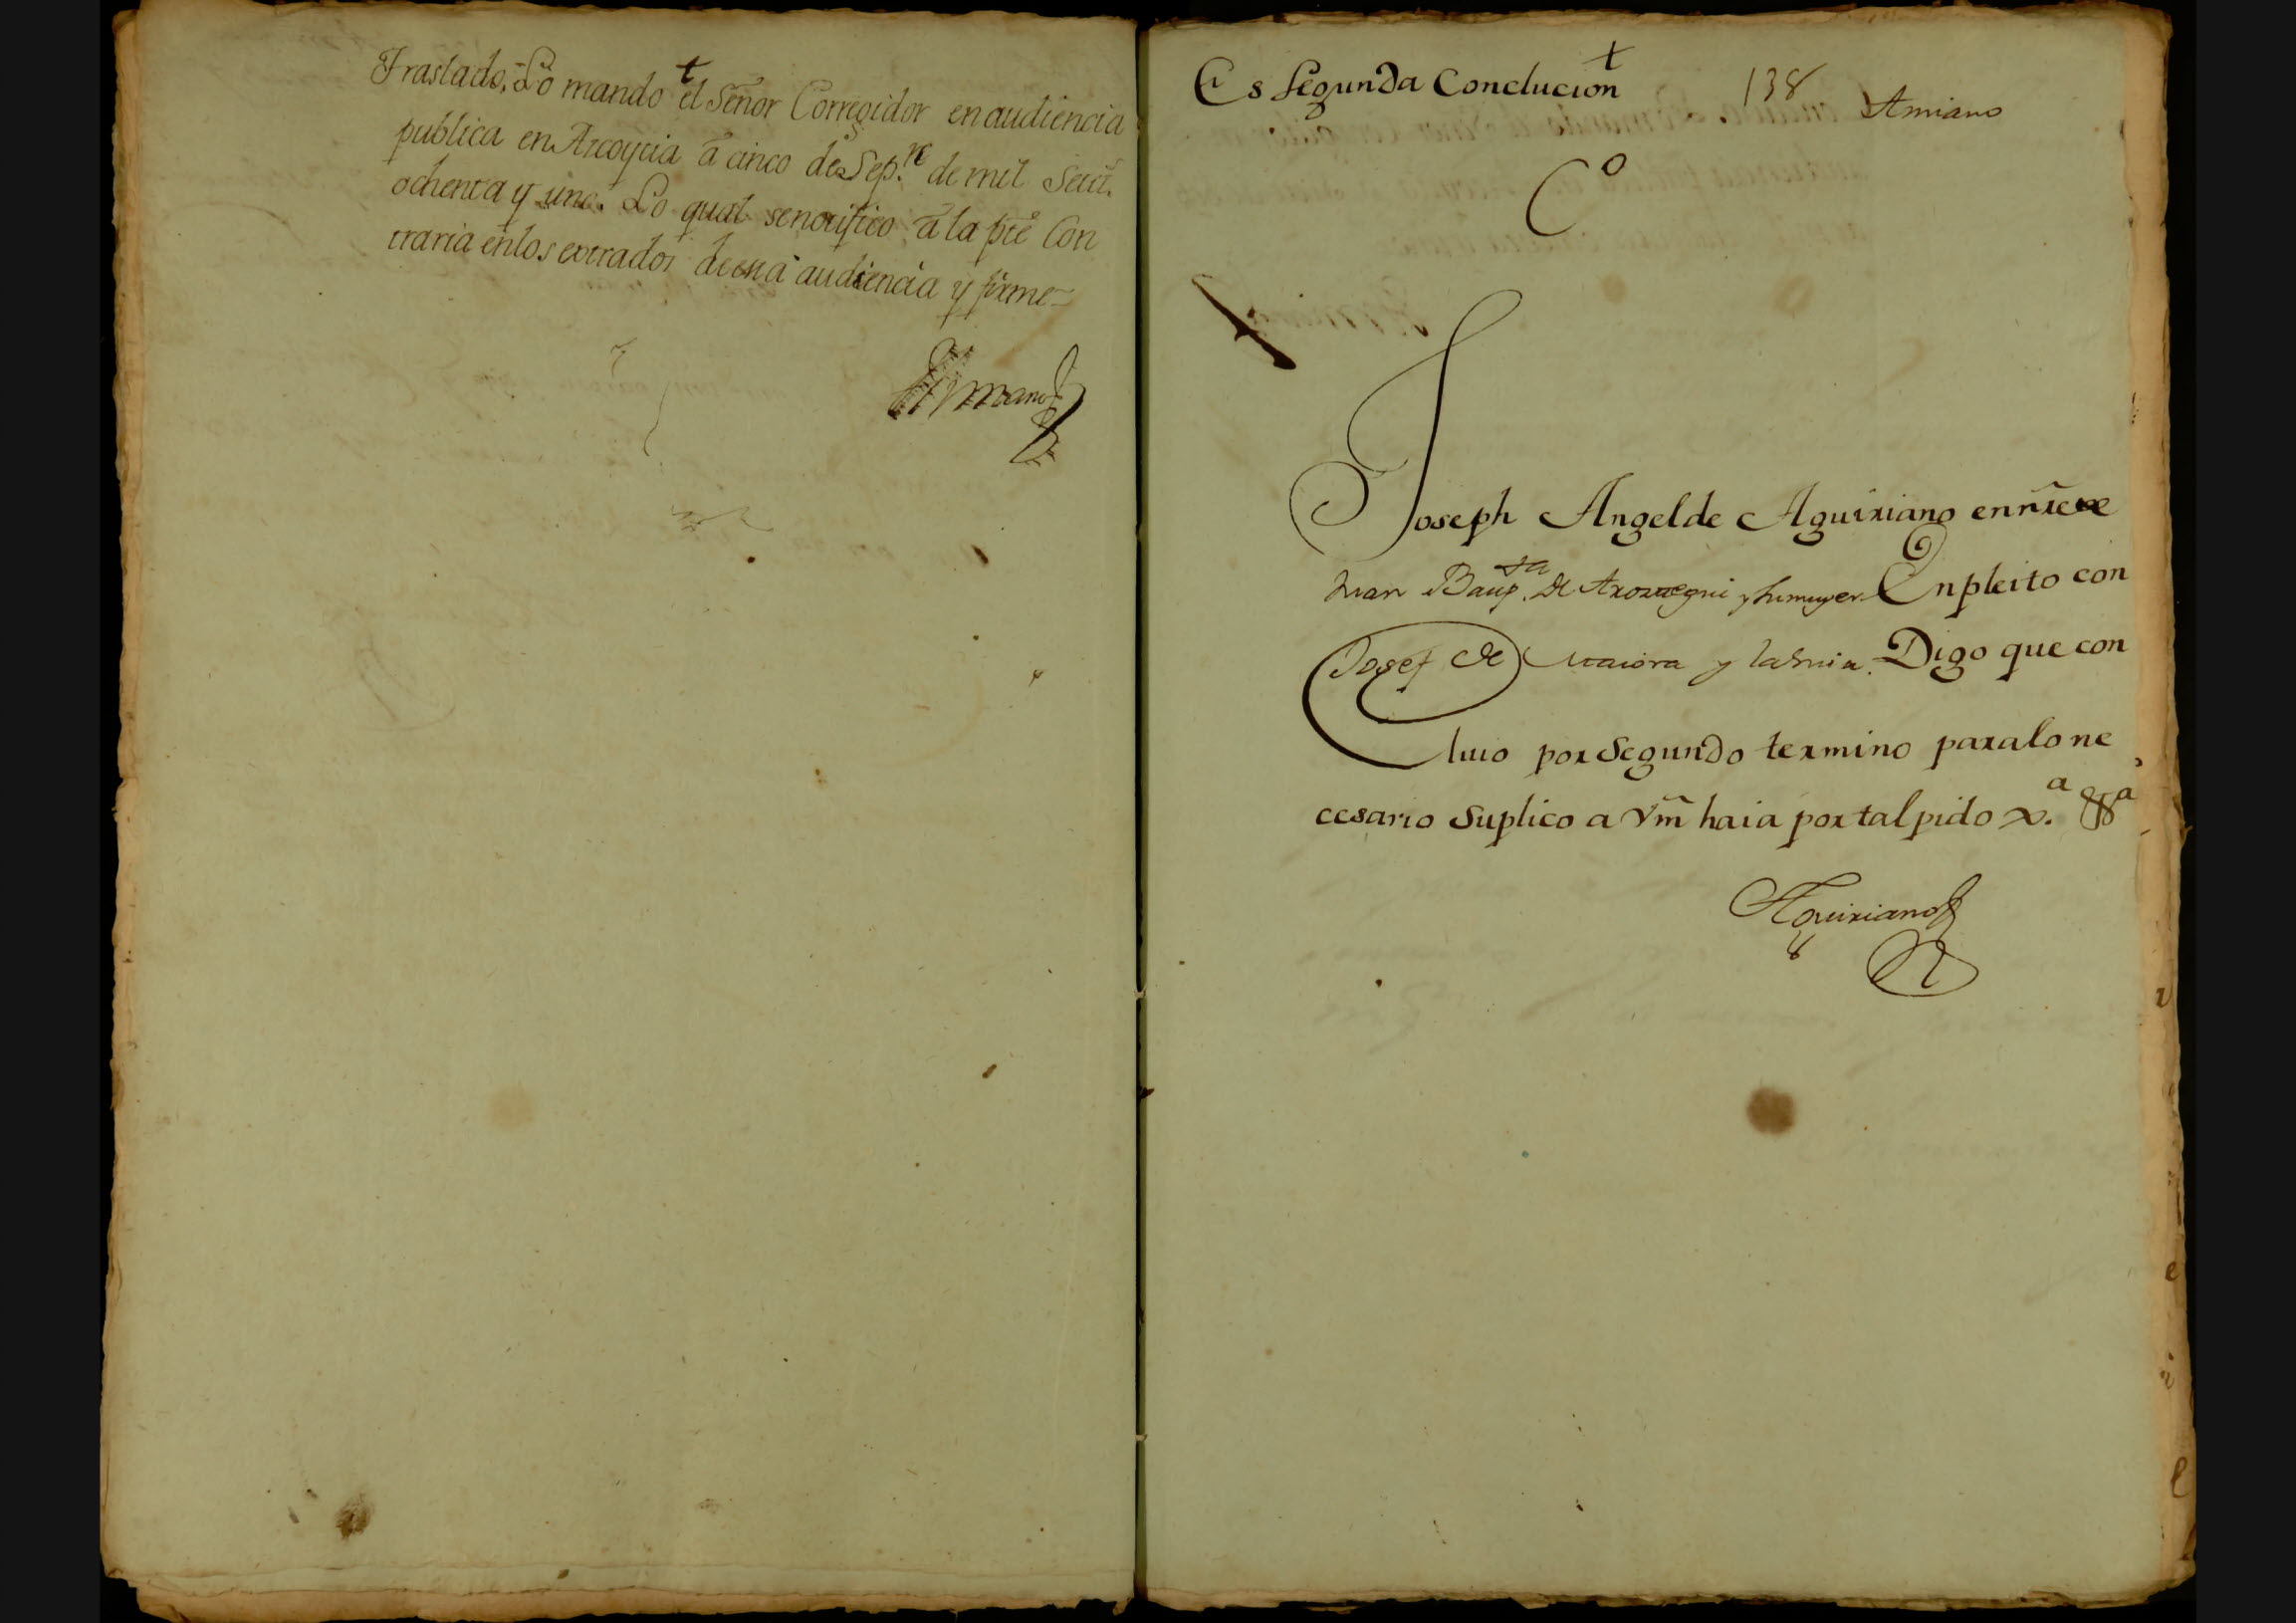 t
Traslado, Lo mando el Señor Corregidor en audiencia
publica en Ascoycia â cinco de Sep.re de mil Setez.
ochenta y uno. Lo qual se notifico â la pte Con
traria en los extrados de esta audiencia y firme
Amiano
t
Es Segunda Conclucion 138 Amiano
Co
Joseph Angel de Aguiriano en nre de
Juan Baup.ta de Arozegui y su muger En pleito con
Josef de Maiora y la Suia. Digo que con
luio por Segundo termino para lo ne
cesario Suplico a Vm haia por tal pido
Aguiriano